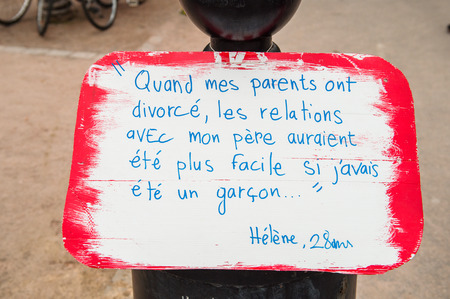 "Quand mes parents ont
divorcé, les relations
avec mon père auraient
été plus facile si j'avais
été un garçon... "
Hélène, 28ans